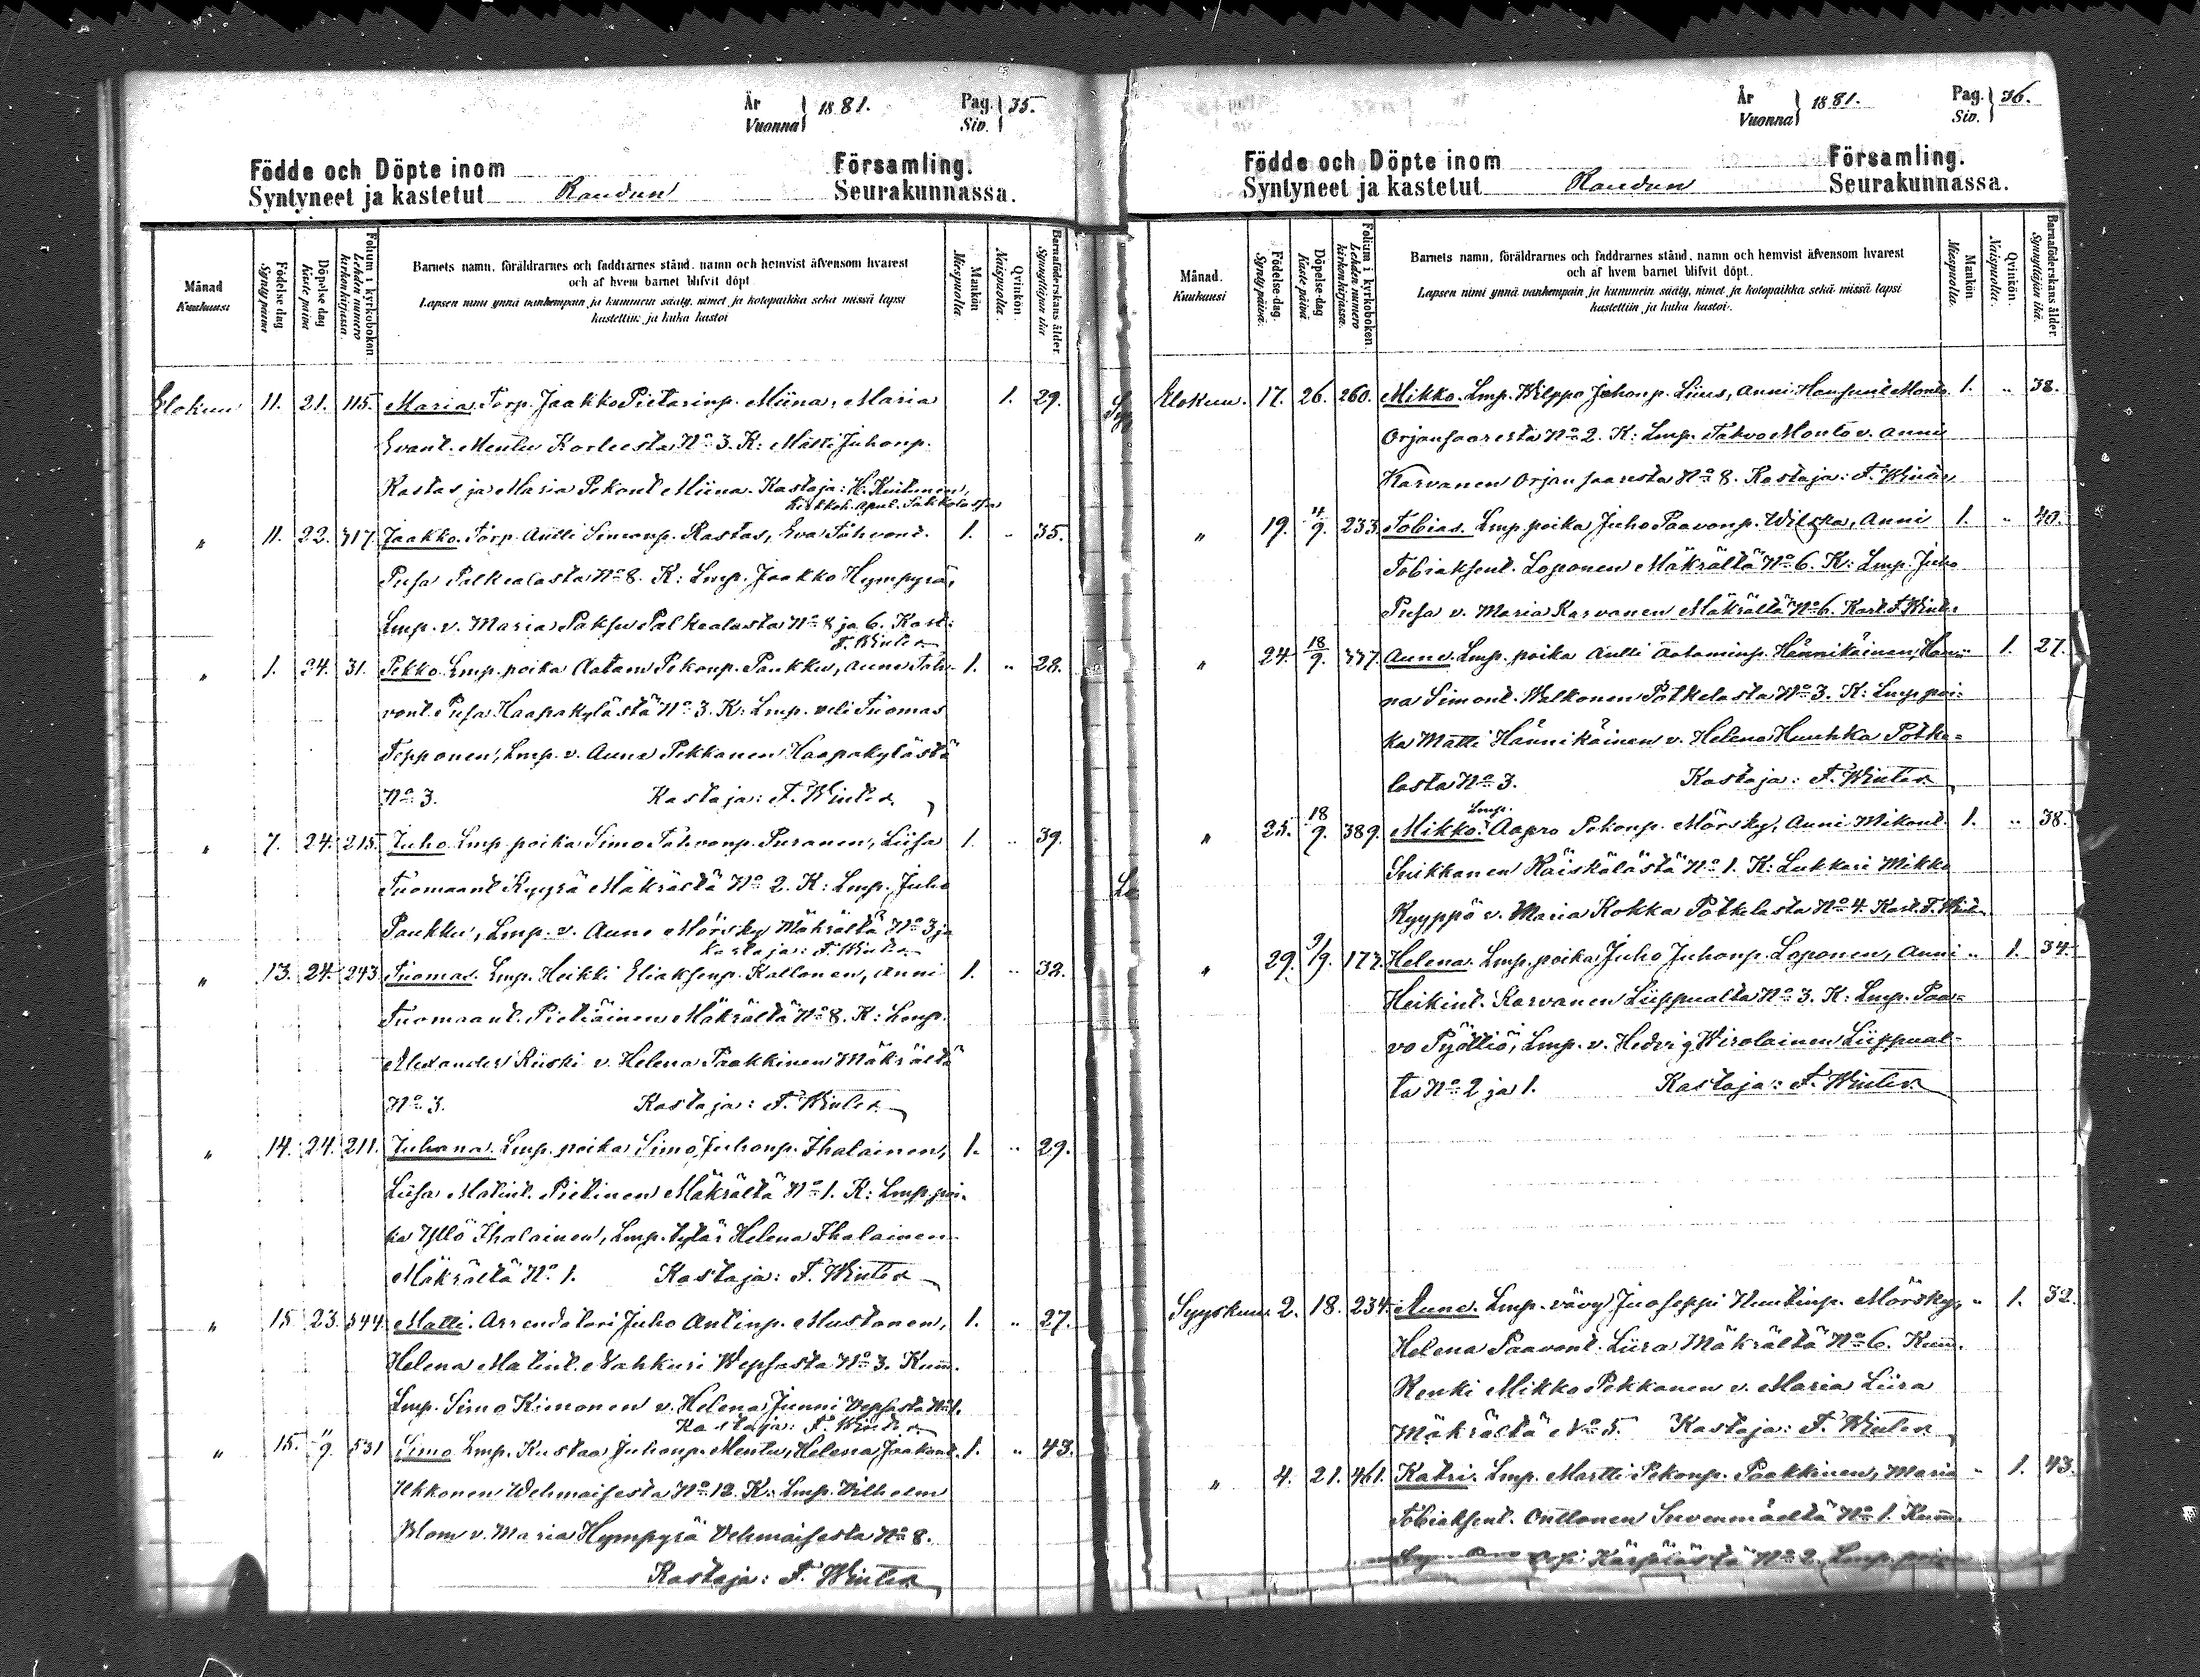 År
Vuonna } 1881.
Pag.
Siv. } 35.
Födde och Döpte inom Församling.
Syntyneet ja kastetut Raudun Seurakunnassa.
Månad
Kuukausi
Födelse dag
Synty päivä
Döpelse dag
Kaste päivä
Folium i kyrkoboken.
Lehden numero kirkonkirjassa.
Barnets namn, föräldrarnes och faddrarnes stånd, namn och hemvist äfvensom hvarest
och af hvem barnet blifvit döpt
Lapsen nimi ynnä vanhempain ja kummein sääty, nimet ja kotopaikka sekä missä lapsi
kastettiin ja kuka kastoi
Mankön
Miespuolta.
Qvinkön
Naispuolta.
Barnaföderskans ålder.
Synnyttäjän ikä
Elokuu 11. 21. 115. Maria. Torp. Jaakko Pietarinp. Miina, Maria 1. 29.
Evant. Mentu Korleesta No 3. K: Matti Juhonp.
Rastas ja Maria Pekont Miina. Kastaja: H. Kiutunen,
kirkkoh. apul. Sakkolassa
" 11. 22. 317. Jaakko. Torp. Antti Simonp. Rastas, Eva Tahvont. 1. " 35.
Pusa Palkealasta No 8. K: Lmp. Jaakko Hympyrä,
Lmp. v. Maria Paksu Palkealasta No 8 ja 6. Kast:
F. Winter
" 1. 24. 31. Pekko. Lmp. poika Aatam Pekonp. Paukku, Anna Tah- 1. " 28.
vont. Pusa Haapakylästä No 3. K: Lmp. veli Tuomas
Tepponen, Lmp. v. Anna Pekkanen Haapakylästä
No 3. Kastaja: F. Winter
" 7. 24. 215. Juho. Lmp. poika Simo Tahvonp. Puranen, Liisa 1. " 39.
Tuomaant Kyyrä Mäkrästä No 2. K: Lmp. Juho
Paukku, Lmp. v. Anna Mörsky Mäkrältä No 3 ja
Kastaja: F. Winter
" 13. 24. 243. Tuomas. Lmp. Heikki Eliaksenp. Kallonen, Anni 1. " 32.
Tuomaant. Pietiäinen Mäkrältä No 8. K: Lmp.
Alexander Kiiski v. Helena Paakkinen Mäkrältä
No 3. Kastaja: F. Winter
" 14. 24. 211. Juhana. Lmp. poika Simo Juhonp. Ihalainen, 1. " 29.
Liisa Matint. Pietinen Mäkrältä No 1. K: Lmp. poi-
ka Yllö Ihalainen, Lmp. tytär Helena Ihalainen
Mäkrältä No 1. Kastaja: F. Winter
" 15 23. 544. Matti. Arrendatori Juho Antinp. Mustonen, 1. " 27.
Helena Matint. Nahkuri Wepsasta No 3. Kumm.
Lmp. Simo Kimonen v. Helena Junni Vepsasta No 1.
Kastaja: F. Winter
" 15. 11/9. 531 Simo Lmp. Kustaa Juhonp. Mentu, Helena Jaakont. 1. " 43.
Ukkonen Wehmaisesta No 12. K. Lmp. Vilhelm
Blom v. Maria Hympyrä Vehmaisesta No 8.
Kastaja: F. Winter
År
Vuonna } 1881.
Pag.
Siv. } 36.
Födde och Döpte inom Församling.
Syntyneet ja kastetut Raudun Seurakunnassa.
Månad.
Kuukausi
Födelse-dag.
Synty päivä.
Döpelse-dag
Kaste päivä
Folium i kyrkoboken.
Lehden numero kirkonkirjassa.
Barnets namn, föräldrarnes och faddrarnes stånd, namn och hemvist äfvensom hvarest
och af hvem barnet blifvit döpt.
Lapsen nimi ynnä vanhempain ja kummein sääty, nimet ja kotopaikka sekä missä lapsi
kastettiin ja kuka kastoi.
Mankön
Miespuolta.
Qvinkön.
Naispuolta.
Barnaföderskans ålder.
Synnyttäjän ikä.
Elokuu. 17. 26. 260. Mikko. Lmp. Wilppo Juhonp. Liius, Anni Hansunt Monto 1. " 38.
Orjansaaresta No 2. K: Lmp. Tahvo Monto v. Anni
Karvanen Orjansaaresta No 8. Kastaja: F. Winter
" 19. 4/9. 233. Tobias. Lmp. poika Juho Paavonp. Wilska, Anni 1. " 40.
Tobiaksent. Loponen Mäkrältä No 6. K: Lmp. Juho
Pusa v. Maria Karvanen Mäkrältä No 6. Kast. F. Winter
" 24. 18/9. 337. Anna. Lmp. poika Antti Aataminp. Hännikäinen, Han- " 1. 27.
na Simont. Walkonen Potkelasta No 3. K: Lmp. poi-
ka Matti Hännikäinen v. Helena Huuhka Potke-
lasta No 3. Kastaja: F. Winter
" 25. 18/9. 389. Mikko. Lmp. Aapro Pekonp. Mörsky, Anni Mikont. 1. " 38.
Suikkanen Räiskälästä No 1. K: Lukkari Mikko
Kyyppö v. Maria Kokka Potkelasta No 4. Kast. F. Wint.
" 29. 9/9. 177. Helena. Lmp. poika Juho Juhonp. Loponen, Anni " 1. 34.
Heikint. Karvanen Liippualta No 3. K: Lmp. Paa-
vo Pyöttiö, Lmp. v. Hedvig Wirolainen Liippual-
ta No 2 ja 1. Kastaja: F. Winter
Syyskuu. 2. 18. 234. Anna. Lmp. vävy Juoseppi Nuutinp. Mörsky, " 1. 32.
Helena Paavont. Liira Mäkrältä No 6. Kumm.
Renki Mikko Pekkanen v. Maria Liira
Mäkrältä No 5. Kastaja: F. Winter
" 4. 21. 461. Katri. Lmp. Martti Pekonp. Paakkinen, Maria " 1. 43.
Tobiaksent. Onttonen Suvenmäeltä No 1. Kumm.
Kärpälästä No 2, Lmp.